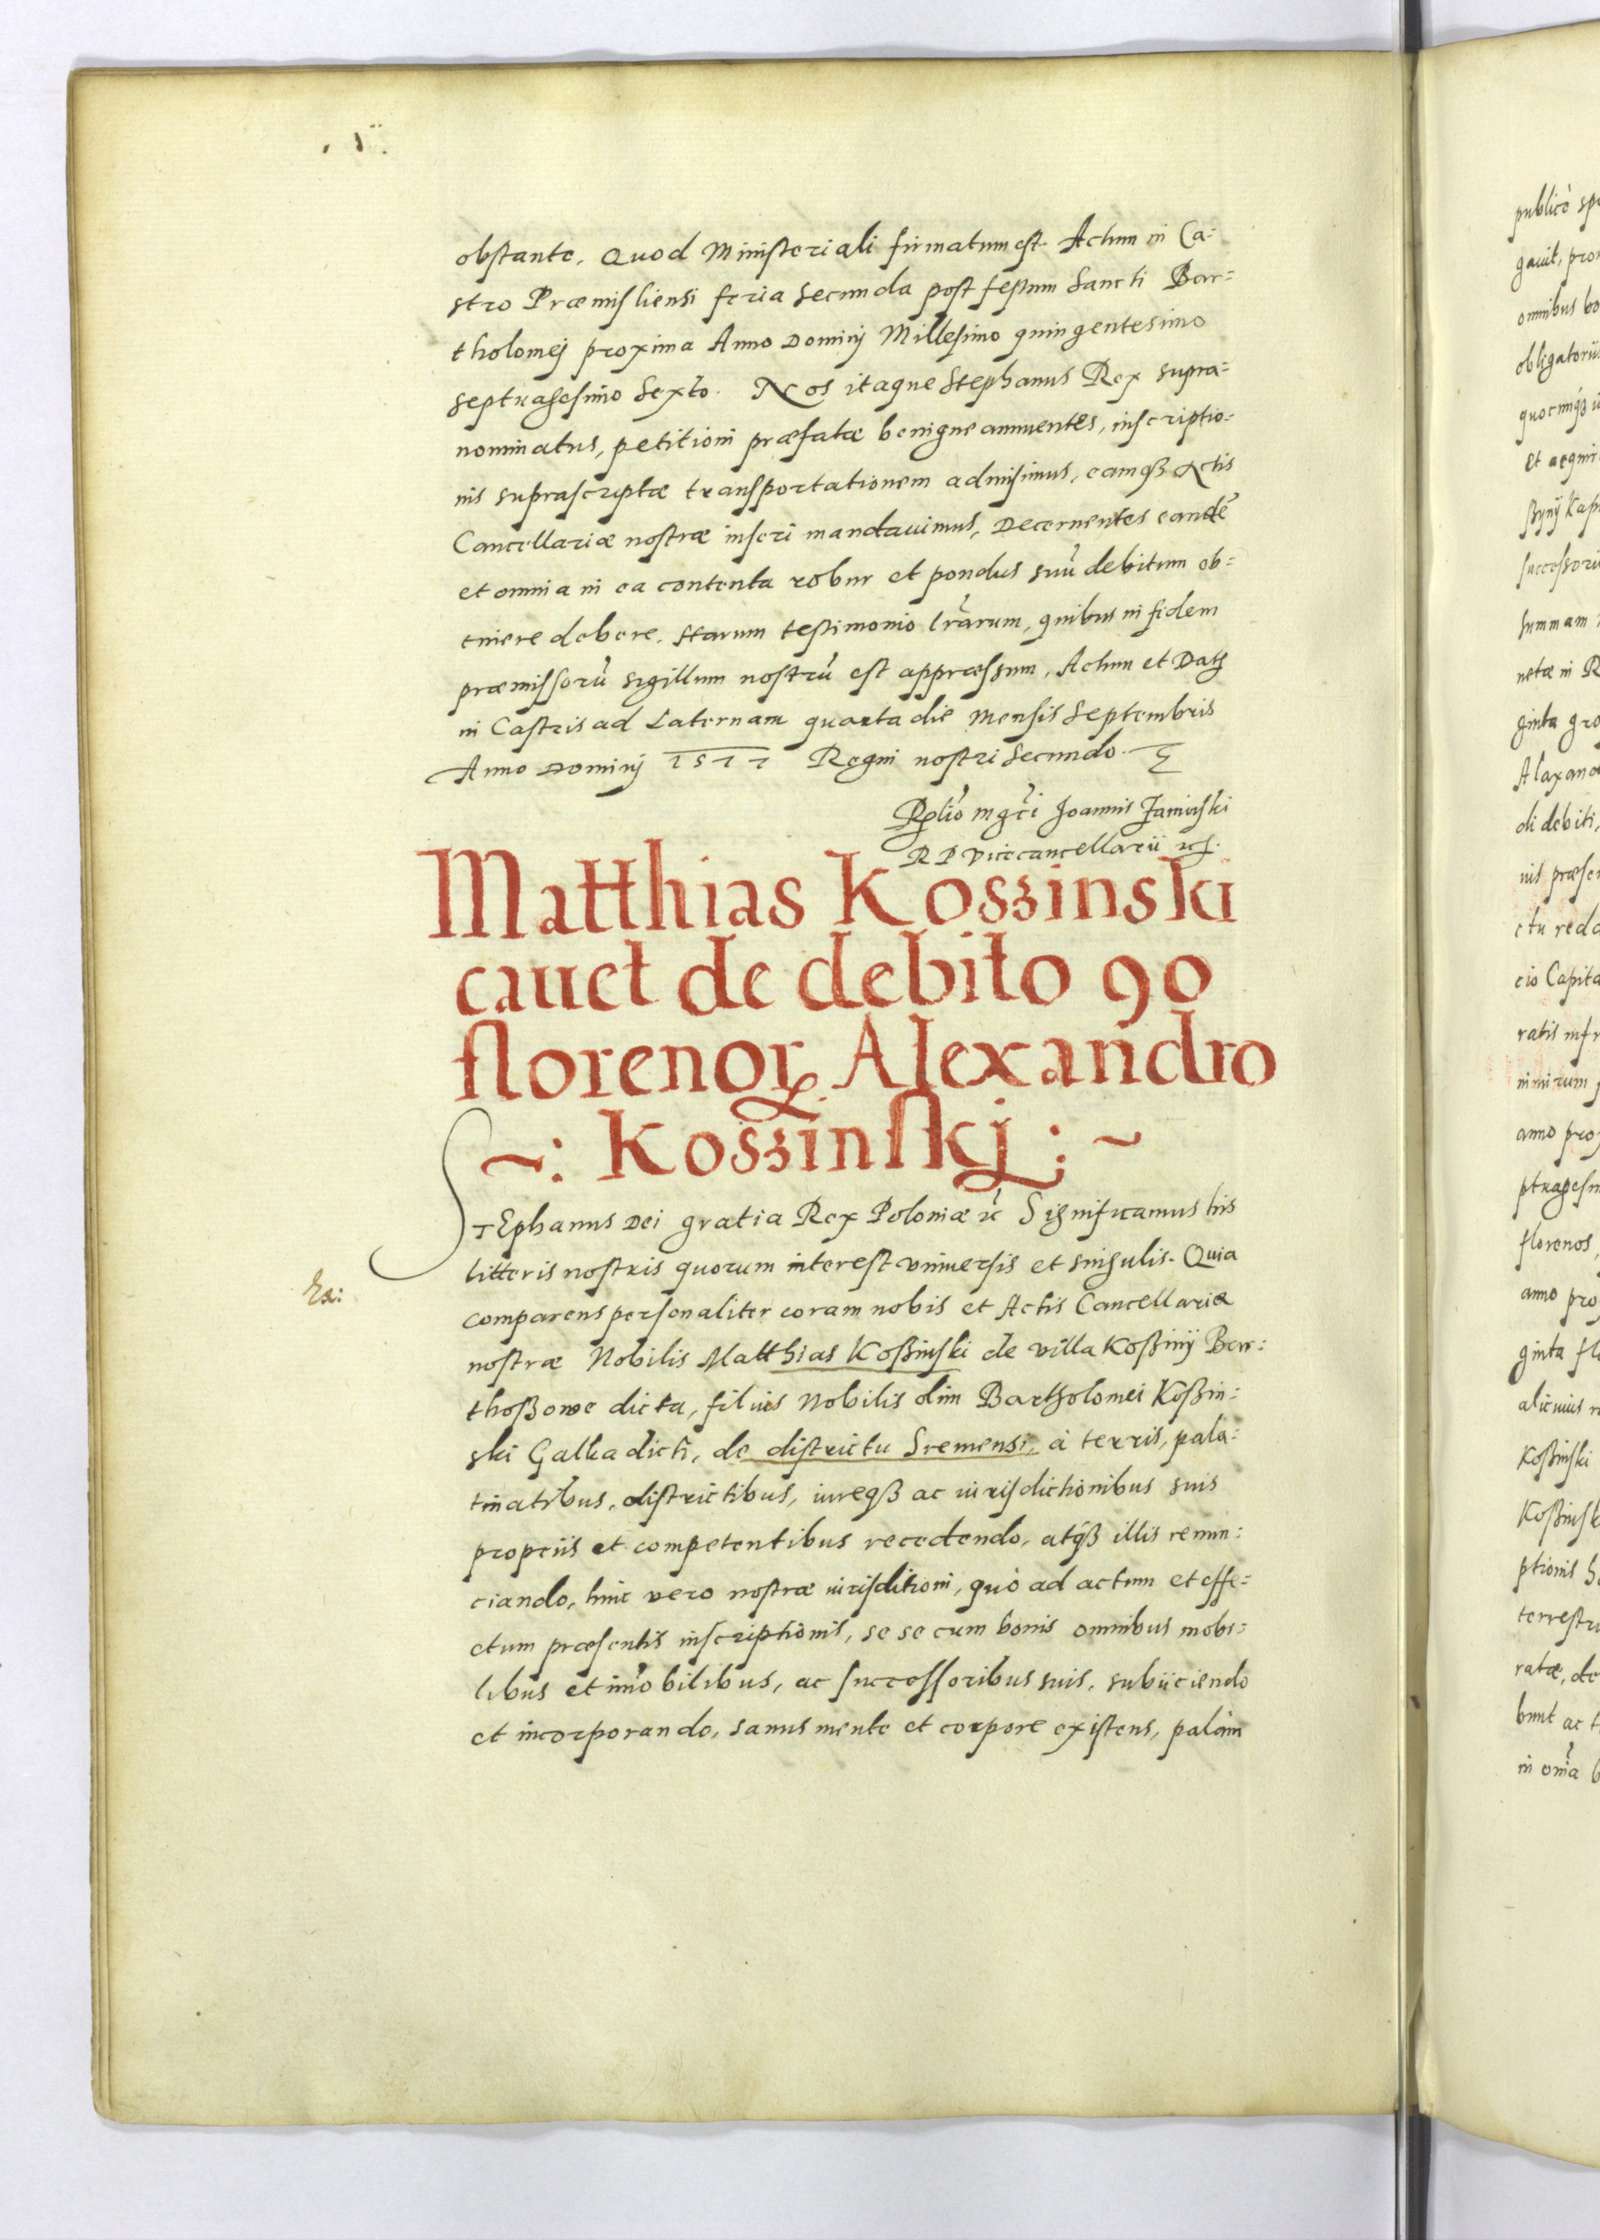 obstante. Quod Ministeriali firmatum est. Actum in Ca:
stro Præmisliensi feria secunda post festum Sancti Bar:
tholomej proxima Anno Dominij Millesimo quingentesimo
septuagesimo Sexto. Nos itaque Stephanus Rex supra:
nominatus, petitioni præfatæ benigne annuentes, inscriptio:
nis suprascriptæ transportationem admisimus, eamqß Actis
Cancellariæ nostræ inseri mandavimus, Decernentes eandẽ
et omnia in ea contenta robur et pondus suũ debitum ob:
tinere debere. Harum testimonio lr̃arum, quibus in fidem
præmissorũ sigillum nostrũ est appræssum. Actum et Datʒ
in Castris ad Laternam quarta die Mensis Septembris
Anno Dominij 1577 Regni nostri Secundo.
Rp̱lio mgc̃i Joannis Zamiński
R P Vicecancellarii
Matthias Kosʒinski
cauet de debito 90
florenoꝝ Alexandro
~: Kosʒinskj : ~
STEphanus Dei gratia Rex Poloniæ ꝛc̃ Significamus his
litteris nostris quorum interest vniuersis et singulis. Quia
comparens personaliter coram nobis et Actis Cancellariæ
nostræ Nobilis Matthias Koßinski de villa Koßinij Bar:
thoßowe dicta, filius Nobilis olim Bartholomei Koßin:
ski Galka dicti, de districtu Sremensi, à terris, pala:
tinatibus, districtibus, iureqß ac iurisdictionibus suis
proprijs et competentibus recedendo, atqß illis renun:
ciando, hinc vero nostræ iurisditioni, quò ad actum et effe:
ctum præsentis inscriptionis, se se cum bonis omnibus mobi:
libus et im̃obilibus, ac successoribus suis, subijciendo
et incorporando, sanus mente et corpore existens, palàm
publicò
gauit,
omnibus
obligatoriis
Et
summam
netæ in
ginta
di debiti,
nis
ctu
cio
ratis
nimirum
anno
florenos,
anno
ginta
alicuius
Koßinski
ptionis
ratæ, de
bunt ac
in om̃a